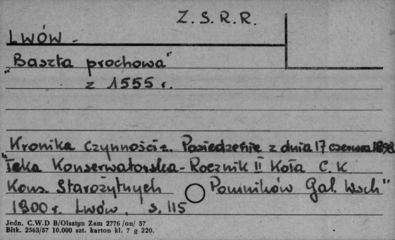 Z. S. R. R.
LWÓW -
"Baszta prochowa"
z 1555 r.
Kronika czynności z. Posiedzenie z dnia 17 czerwca 1898
"Teka Konserwatorska - Rocznik II Koła C. K
Kons. Starożytnych Pomników Gal. Wsch"
1900 r. Lwów s. 115
Jedn. C.W.D B/Olsztyn Zam 2776/on/57
Błtk. 2563/57 10.000 szt. karton kl. 7 g 220.